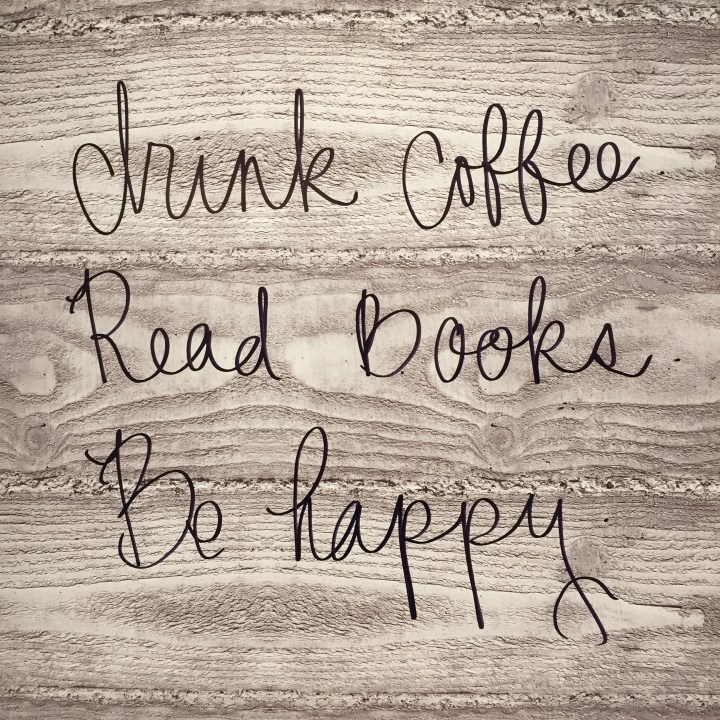 drink coffee
Read Books
Be happy